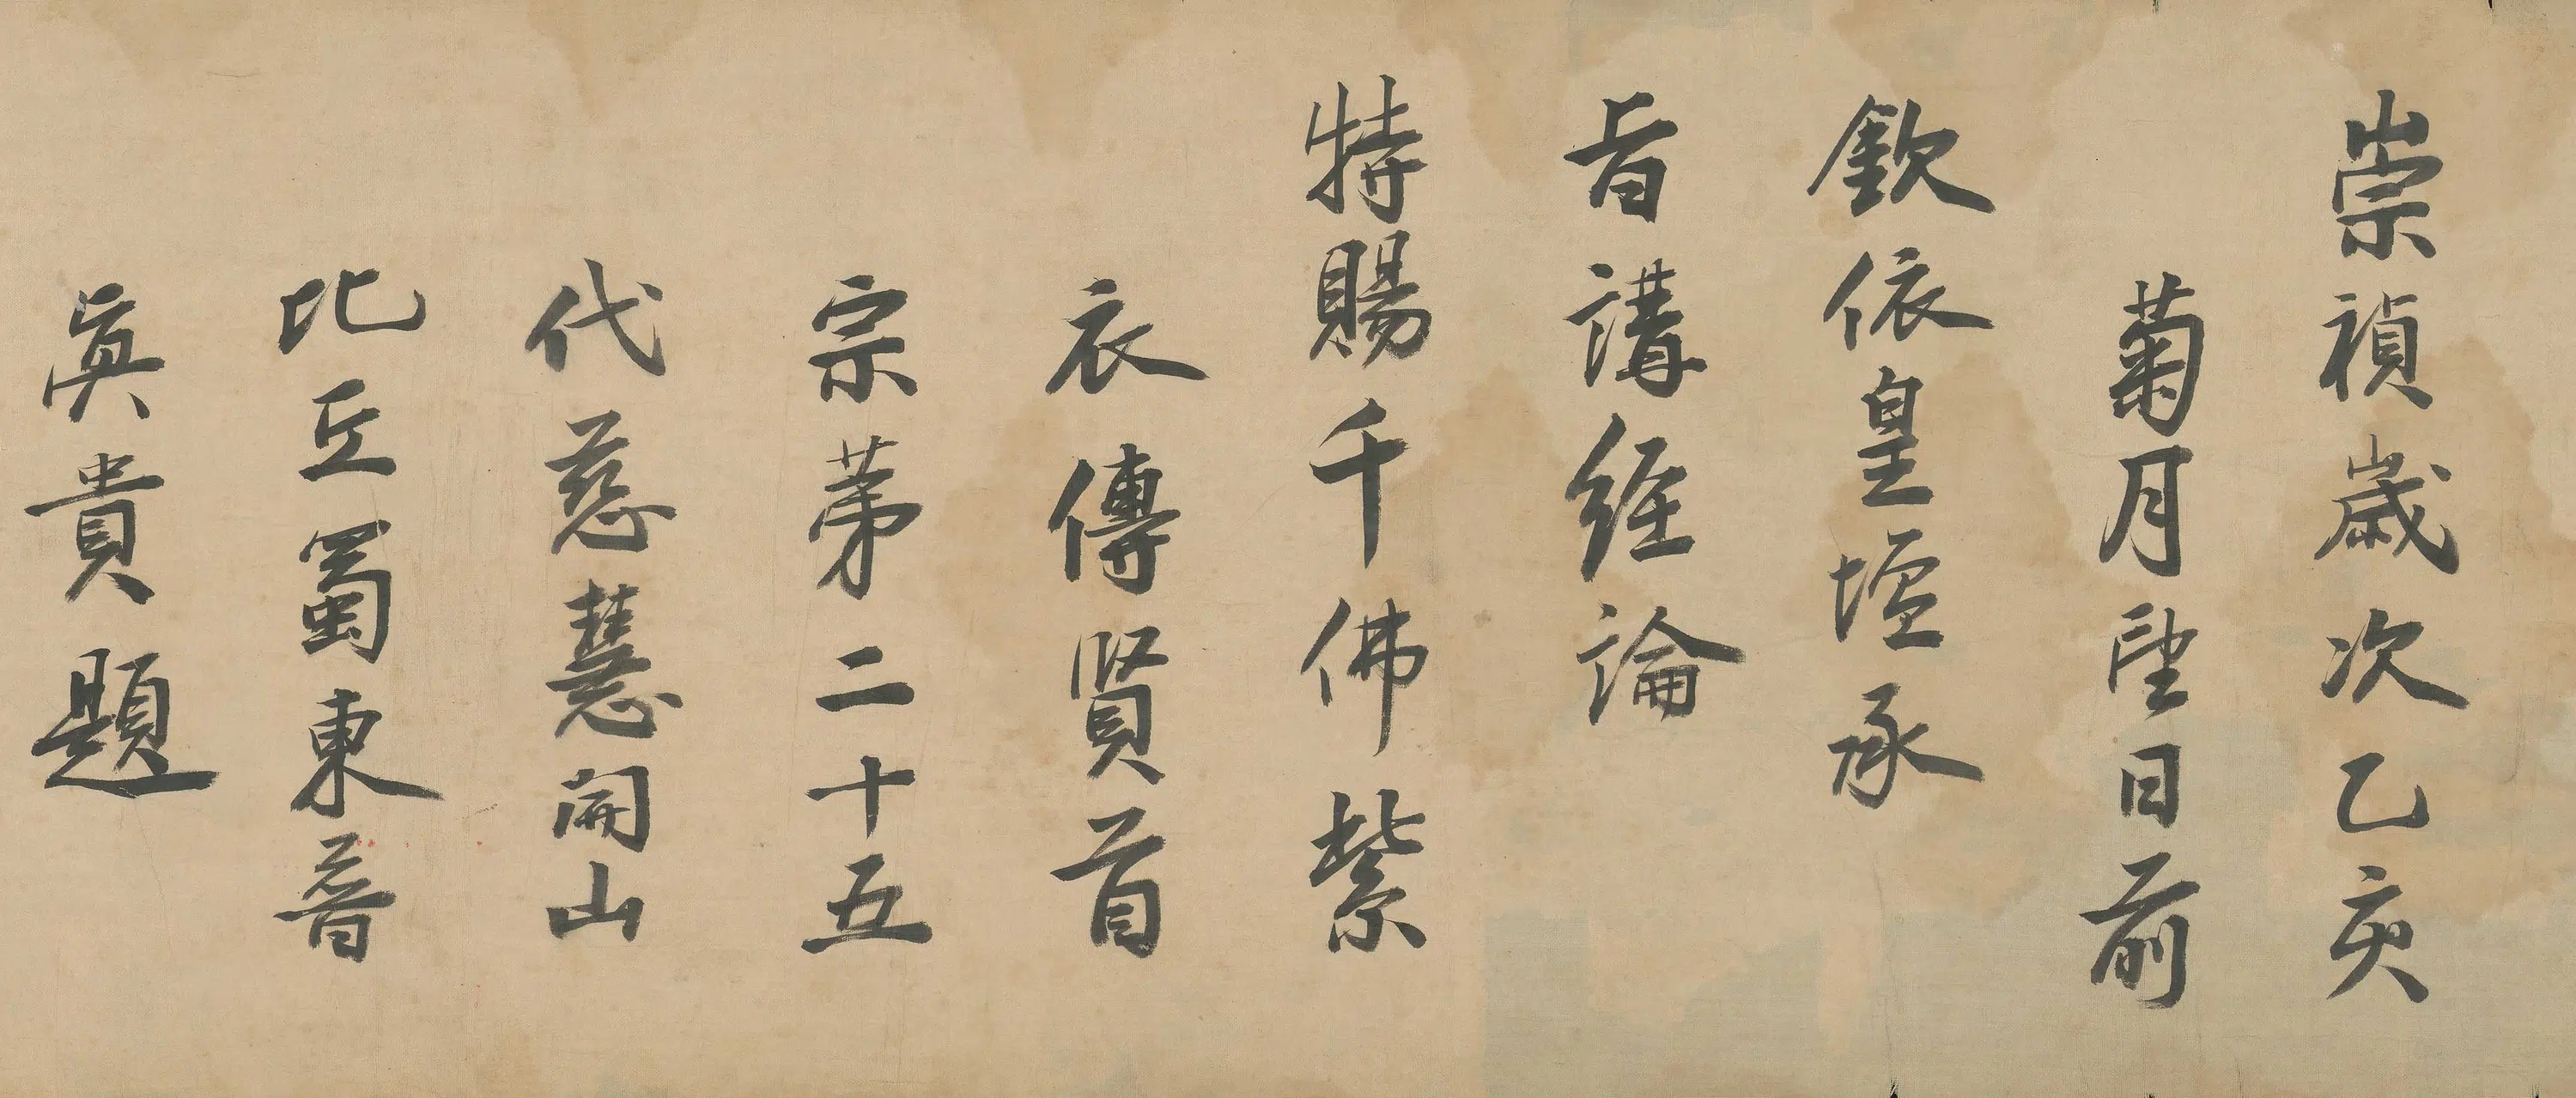 崇禎歲次乙亥
菊月望日前
欽依皇壇承
旨講經論
特賜千佛紫
衣傳賢首
宗第二十五
代慈慧開山
比丘蜀東普
真貴題